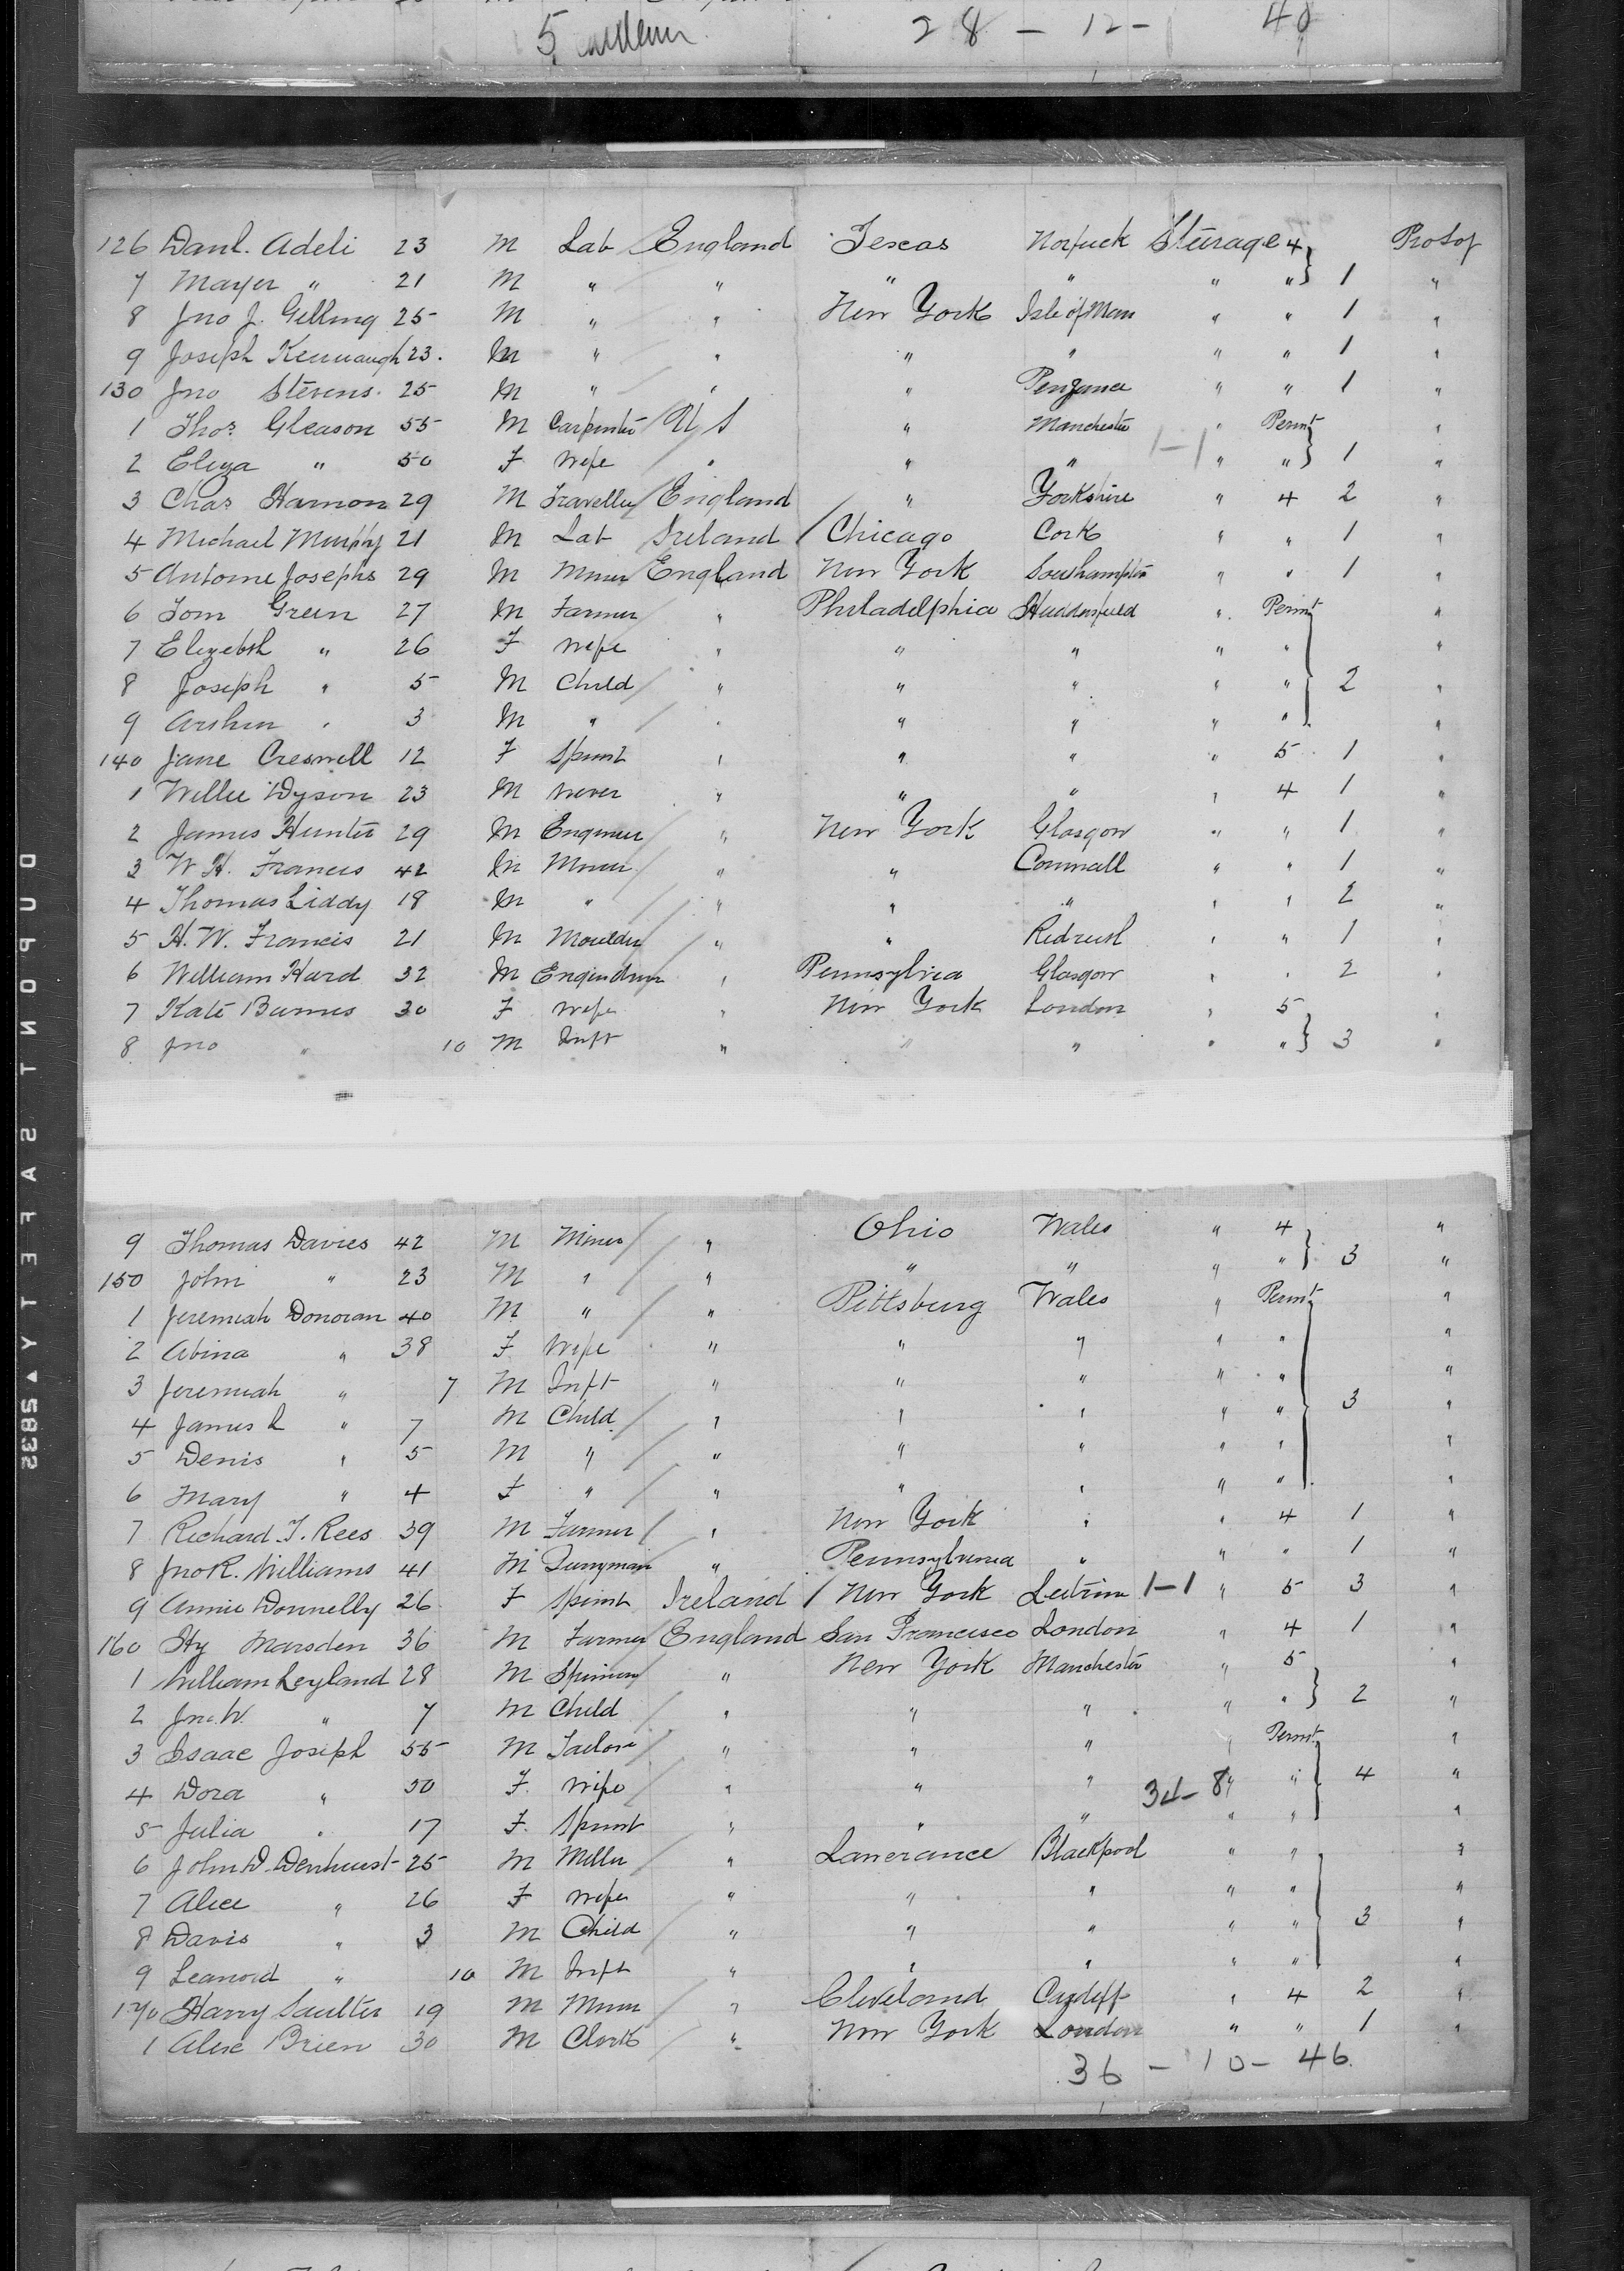 5 28 - 12 - 40
126 Danl. Adeli 23 M Lab England Texas Norfuck Sturage 4 Protof
7 Mayer " 21 M " " " " " " 1 "
8 Jno J. Gelling 25 M " " New York Isle of Man " " 1 "
9 Joseph Kennaugh 23. M " " " " " " 1 "
130 Jno Stevens. 25 M " " " Penzance " " 1 "
1 Thos. Gleason 55 M Carpenter U S " Manchester " Permt "
2 Eliza " 50 F Wife " " " 1-1 " " 1 "
3 Chas Harmon 29 M Traveller England " Yorkshire " 4 2 "
4 Michael Murphy 21 M Lab Ireland Chicago Cork " " 1 "
5 Antoine Josephs 29 M Miner England New York Southampton " " 1 "
6 Tom Green 27 M Farmer " Philadelphia Huddersfield " Permt "
7 Elizebth " 26 F Wife " " " " " "
8 Joseph " 5 M Child " " " " " 2 "
9 Arthur " 3 M " " " " " " "
140 Jane Creswell 12 F Spinst " " " " 5 1 "
1 Willie Dyson 23 M Wever " " " " 4 1 "
2 James Hunter 29 M Engineer " New York Glasgow " " 1 "
3 W H. Francis 42 M Miner " " Cornwall " " 1 "
4 Thomas Liddy 18 M " " " " " " 2 "
5 H. W. Francis 21 M Moulder " " Redruth " " 1 "
6 William Hard 32 M Engindrivr " Pennsylvia Glasgow " " 2 "
7 Kate Burnes 30 F Wife " New York London " 5 "
8 Jno " 10 M Inft " " " " " 3 "
9 Thomas Davies 42 M Miner " Ohio Wales " 4 "
150 John " 23 M " " " " " " 3 "
1 Jeremiah Donovan 40 M " " Pittsburg Wales " Permt "
2 Abina " 38 F Wife " " " " " "
3 Jeremiah " 7 M Inft " " " " " "
4 James L " 7 M Child " " " " " 3 "
5 Denis " 5 M " " " " " " "
6 Mary " 4 F " " " " " " "
7 Richard T. Rees 39 M Farmer " New York " " 4 1 "
8 Jno R. Williams 41 M Quryman " Pennsylvania " " " 1 "
9 Annie Donnelly 26 F Spinst Ireland New York Leitrim 1-1 " 5 3 "
160 Hy Marsden 36 M Farmer England San Francisco London " 4 1 "
1 William Leyland 28 M Spinner " New York Manchester " 5 "
2 Jno. W. " 7 M Child " " " " " 2 "
3 Isaac Joseph 55 M Tailor " " " " Permt "
4 Dora " 50 F. Wife " " " 34-8 " " 4 "
5 Julia " 17 F. Spinst " " " " " "
6 John D. Denhurst 25 M Miller " Lawerance Blackpool " " "
7 Alice " 26 F Wife " " " " " "
8 Davis " 3 M Child " " " " " 3 "
9 Leanord " 10 M Inft " " " " " "
170 Harry Saulter 19 M Miner " Cleveland Cardiff " 4 2 "
1 Alexe Brien 30 M Clerk " New York London " " 1 "
36 - 10 - 46.
DUPONT SAFETY 5832